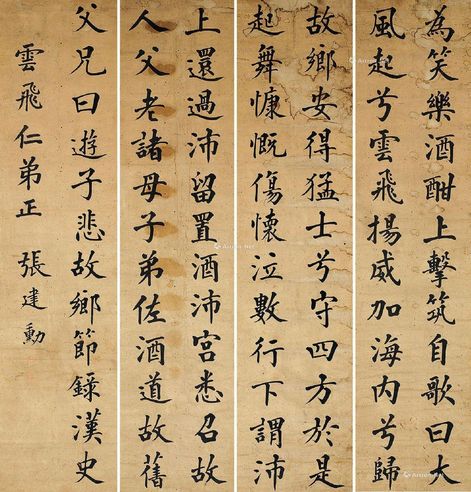 為笑樂酒酣上擊筑自歌曰大
風起兮雲飛揚威加海內兮歸
故鄉安得猛士兮守四方於是
起舞慷慨傷懷泣數行下謂沛
上還過沛留置酒沛宮悉召故
人父老諸母子弟佐酒道故舊
父兄曰遊子悲故鄉節錄漢史
雲飛仁弟正 張建勳